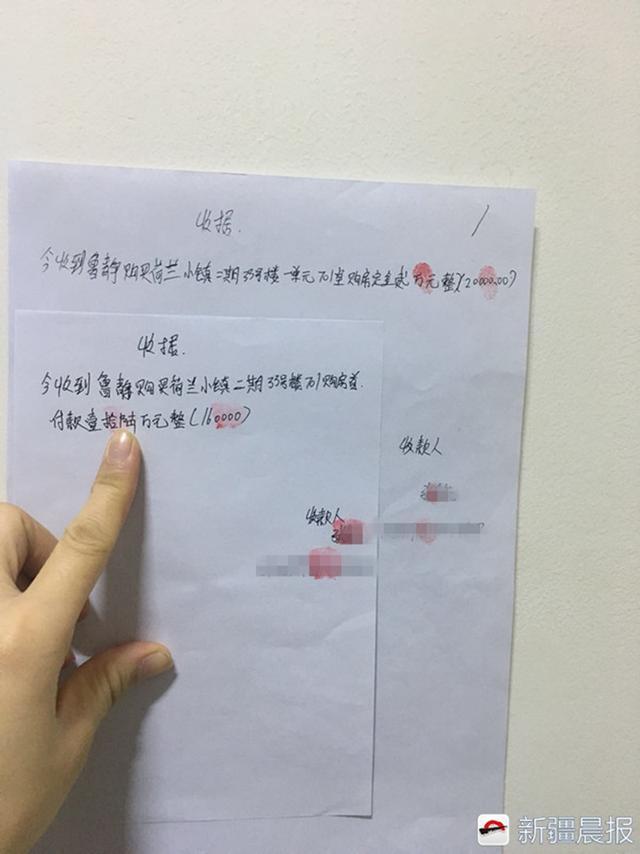 收据.
今收到鲁静购买荷兰小镇二期35号楼一单元701室购房定金贰万元整(20000.00)
收据.
今收到鲁静购买荷兰小镇二期35号楼701购房首
付款壹拾陆万元整(160000)
收款人
收款人
新疆晨报